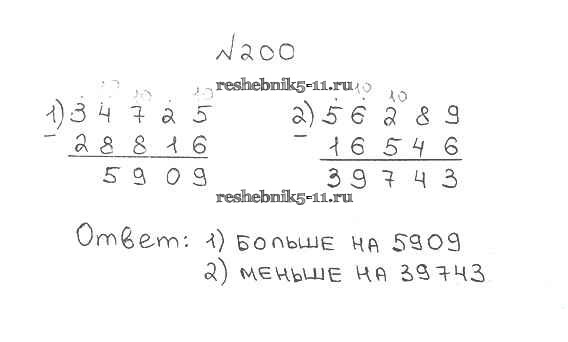 №200
reshebnik5-11.ru
10 10 10 10 10
1) 34725 2) 56289
- 28816 - 16546
5909 39743
reshebnik5-11.ru
Ответ: 1) БОЛЬШЕ НА 5909
2) МЕНЬШЕ НА 39743